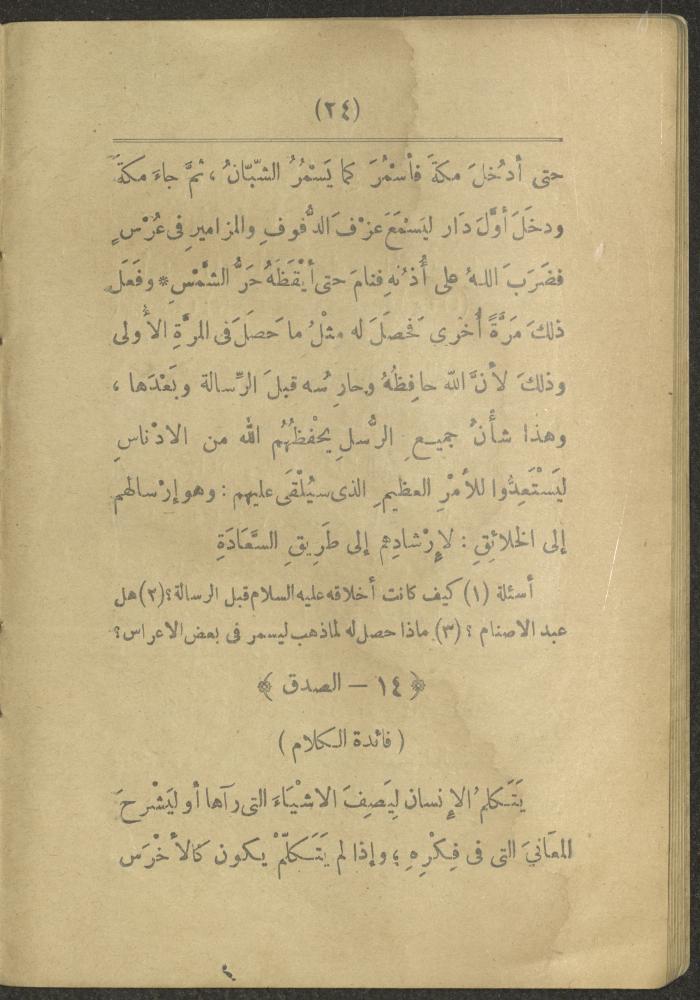 (٢٤)
حتى أدْخُلَ مكةَ فأسْمُرَ كما يَسْمُرُ الشّبّانُ ، ثمَّ جاءَ مكةَ
ودخَلَ أوَّلَ دَار ليَسْتَمعَ عَزْفَ الدُّفوفِ والمزاميرِ فى عُرْسٍ
فضَرَبَ اللهُ على أُذُنهِ فنامَ حتى أيْقَظَهُ حَرُّ الشَّمْسِ * وفَعَلَ
ذلكَ مَرَّةً أخْرى فَحصَلَ له مثْلُ ما حَصَلَ فى المَرَّةِ الأُولى
وذلكَ لأنَّ اللّه حافِظُهُ وحارِسُه قبلَ الرِّسالة وبَعْدَها ،
وهذا شأْنُ جميعِ الرُّسلِ يَحْفظُهُم اللّه من الادْناسِ
ليَسْتَعِدُّوا للأمْرِ العظيمِ الذى سيُلْقَى عليهم : وهو إرْسالهم
إلى الخلائِقِ : لإرْشادِهم إلى طَرِيقِ السَّعَادَةِ
أسئلة (١) كيف كانت أخلاقه عليه السلام قبل الرسالة ؟ (٢) هل
عبد الاصنام ؟ (٣) ماذا حصل له لماذهب ليسمر فى بعض الاعراس ؟
﴿ ١٤ — الصدق ﴾
( فائدة الكلام )
يَتَكلمُ الإنسان لِيَصِفَ الاشْيَاءَ التى رآها أو ليَشْرحَ
المعَانىَ التى فى فِكْرِهِ ؛ وإذا لم يَتَكلّمْ يكون كالأخْرَس